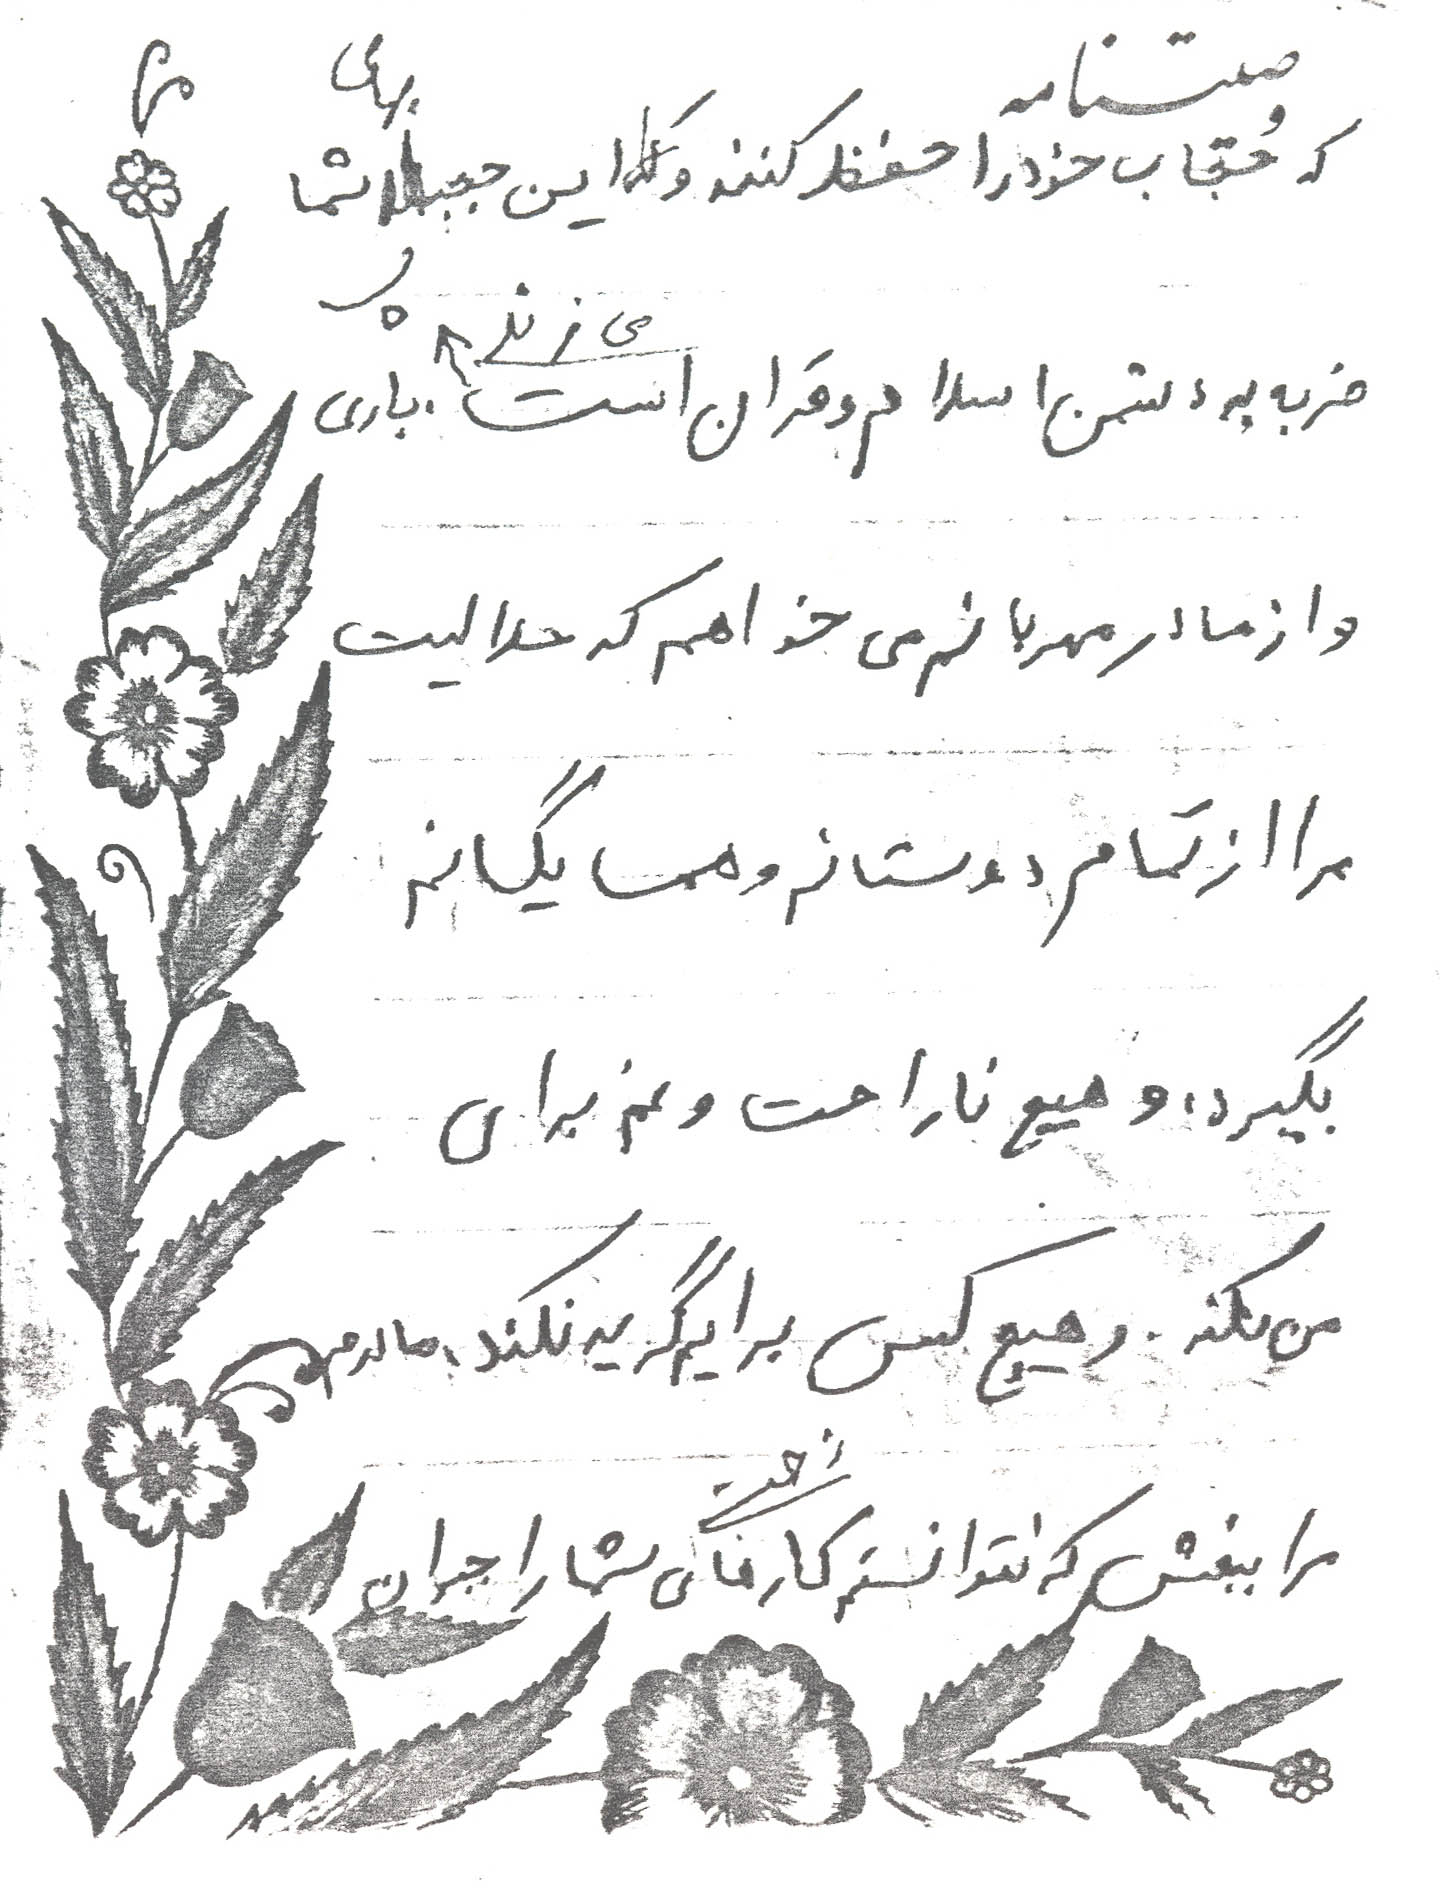 وصیتنامه
که حجاب خود را حفظ کنند و این حجاب شما
ضربه به دشمن اسلام و قران است. باری
می زند
و از مادر مهربانم می خواهم که حلالیت
مرا از تمام دوستانم و همسایگانم
بگیرد، و هیچ ناراحت و غم برای
من نکند. و هیچ کس برایم گریه نکند، مادرم
مرا ببخش که نتوانستم کارهای شما را جبران
زحمت